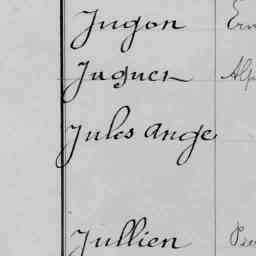 Jugon Ern
Juguet Alp
Jules Ange
Jullien